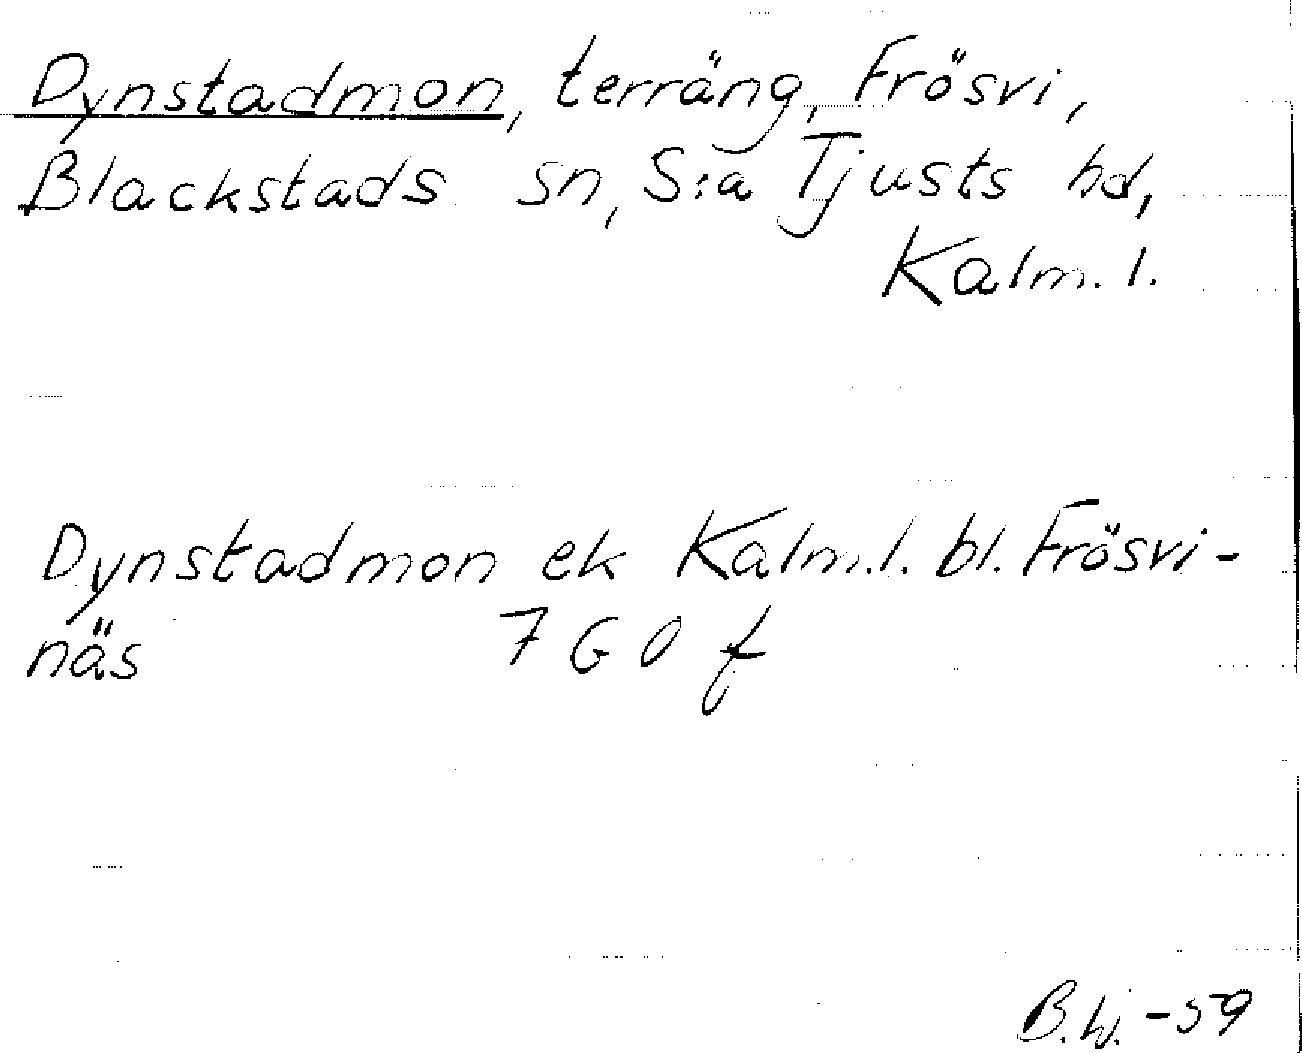 Dynstadmon, terräng, Frösvi,
Blackstads sn, S:a Tjusts hd,
Kalm. l.
Dynstadmon ek Kalm. l. bl. Frösvi-
näs 7 G 0 f
B. Lj. -59